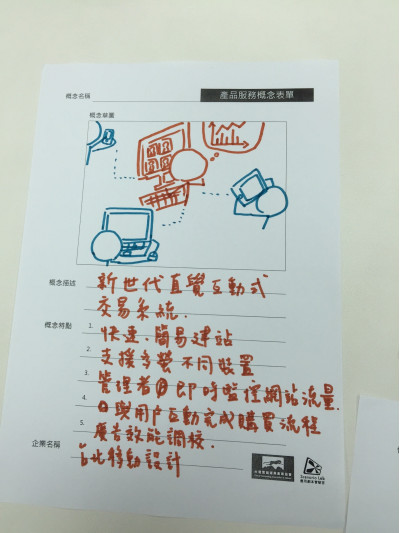 概念名稱
產品服務概念表單
概念草圖
概念描述
新世代直覺互動式
交易系統.
概念特點
1. 快速.簡易建站
2. 支援多螢不同裝置
3. 管理者即時監控網站流量.
4. 與用戶互動完成購買流程
5. 廣告效能調校.
企業名稱
台北移動設計
Scenario Lab